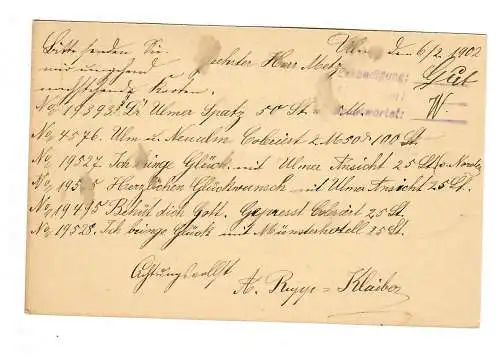 Ulm, den 6/2 1902
Bitte senden Sie
mir umgehend
nachstehende Karten.
Geehrter Herr Metz
Erkundigung: Gut
Antwortet: W.
No 19393. Dr Ulmer Spatz 50 St.
No 4576. Ulm u. Neuulm Coloriert 2 M 50 d 100 St.
No 19527 Ich bringe Glück mit Ulmer Ansicht 25 St.
No 195 5 Herzlichen Glückwunsch mit Ulmer Ansicht 25 St.
No 19495 Behüt dich Gott. Gepresst Colorirt 25 St.
No 19528. Ich bringe Glück mit Münsterhotell 25 St.
Achtungsvollst
A. Rupp = Klaiber